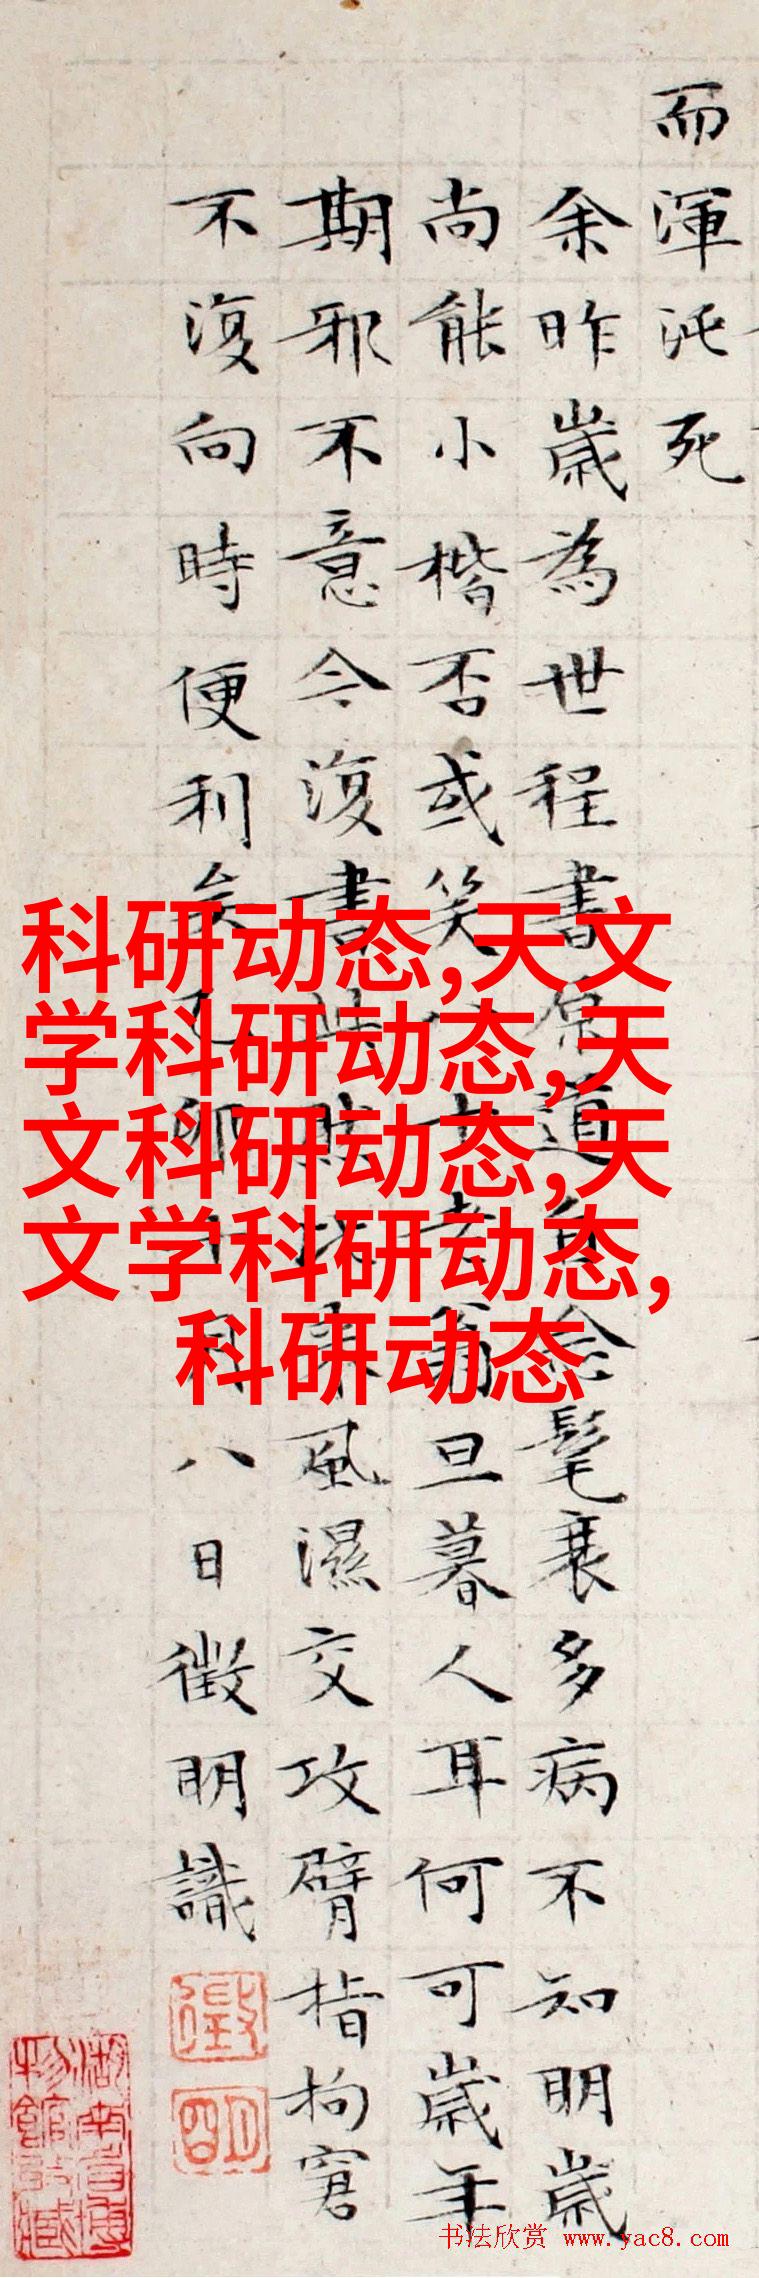 而渾沌死
余昨歲為世程書原道自念髦衰多病不知明歲
尚能小楷否或笑八十老翁旦暮人耳何可歲年
期邪不意今復書此兼風濕交攻臂指拘窘
不復向時便利矣乙卯十月八日徵明識
徵
明
科研动态,天文
学科研动态,天
文科研动态,天
文学科研动态,
科研动态
书法欣赏 www.yac8.com